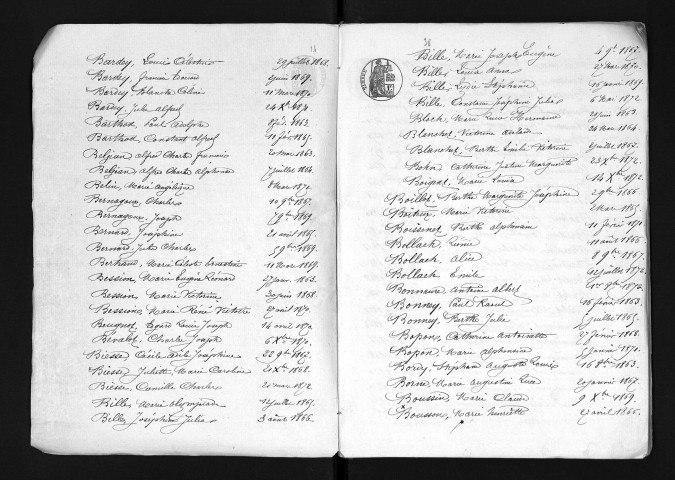 Bardey, Louis Célestin 29 juillet 1868.
Bardey, Francis 1869.
Bardey, Blanche 11 Mars 1870.
Bardey, Jules alfred 24 Xbre
Barthod, Paul adolphe 1863.
Barthod, Constant alfred 11 fév. 1865.
Belgian alfred Charles francois 20 mars 1863.
Belgian, alfred Charles alphonse 7 juillet 1864.
Belin, Marie angélique 8 Mars 1872.
Bernageux, Charles 10 9bre 1867.
Bernageux, Joseph 1869.
Bernard, Joséphine 20 avril 1865.
Bernard, Jules Charles 5 9bre 1869.
Bertrand, Marie ernestine 11 Mars 1869.
Besson, Marie Eugénie 27 janv. 1863.
Besson, Marie Victorine 30 juin 1868.
Bessonne, Marie René Victoire 27 avril 1870.
Beuqnot, Edgard Joseph 14 avril 1870.
Bevalot, Charles Joseph 6 Xbre 1870.
Biesse, Cécile Joséphine 22 9bre 1867.
Biesse, Juliette, Marie Caroline 20 Xbre 1868.
Biesse, Camille Charles 20 mars 1872.
Bille, Marie olympiade 12 juillet 1865.
Bille, Joséphine Julie 3 août 1866.
Bille, Marie Joseph Eugène 4 9bre 1863.
Bille, Louisa Anna 27 Mars 1870.
Bille, Lydie Stéphanie 16 janvier 1869.
Bille, Constance Joséphine Julia 6 Mars 1872.
Bloch, Marie Lucie Hermance 1863.
Blanchot, Victorine 24 mars 1864.
Blanchot, Berthe Emilie Victorine juillet 1867.
Bohn, Catherine Justine Marguerite 23 Xbre 1872.
Marie Louisa 14 Xbre 1872.
Boillot, Berthe Marguerite Joséphine 29 9bre 1866.
Marie Victorine 2 Mars 1865.
Boissenot, Berthe alphonsine 11 février 1870
Bollach, Louise 11 août 1866.
Bollach, Alice 8 9bre 1867.
Bollach, Emile 12 juillet 1872.
Antoine albert 1er 1872.
Bonney, Paul Raoul 16 février 1863.
Bonney, Berthe Julie juillet 1865.
Catherine Antoinette 27 février 1868.
Bopon, Marie alphonsine janvier 1870.
Bordy, Stéphane Auguste Louis 16 8bre 1863.
Borne, Marie Augustine Lucie 20 janvier 1867.
Boussin, Marie Claude 9 Xbre 1869.
Bousson, Marie henriette 27 avril 1866.